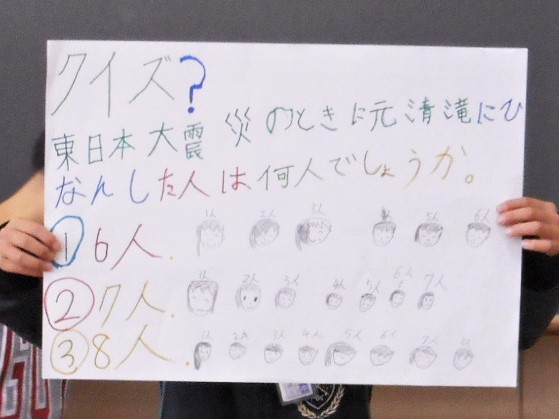 クイズ?
東日本大震災のときに元清滝にひ
なんした人は何人でしょうか。
①6人. 1人 2人 3人 4人 5人 6人
②7人. 1人 2人 3人 4人 5人 6人 7人
③8人. 1人 2人 3人 4人 5人 6人 7人 8人